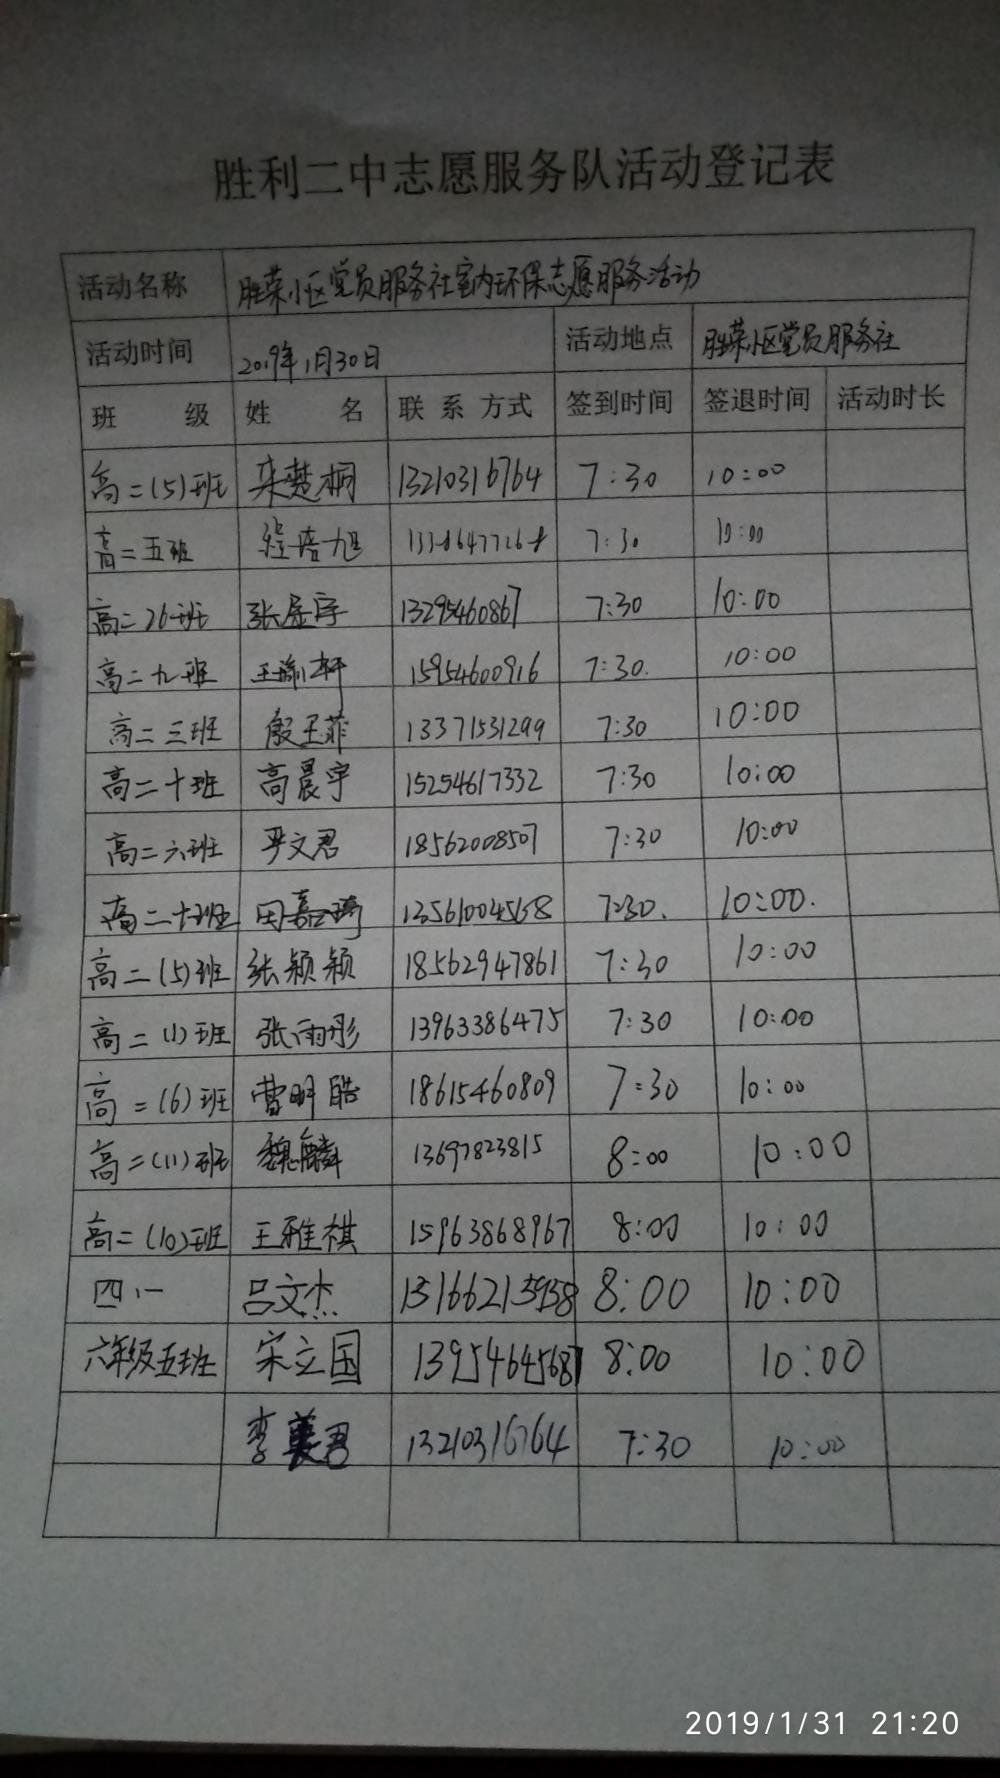 胜利二中志愿服务队活动登记表
活动名称 胜荣小区党员服务社室内环保志愿服务活动
活动时间 2019年1月30日 活动地点 胜荣小区党员服务社
班 级 姓 名 联系方式 签到时间 签退时间 活动时长
高二(5)班 栾楚桐 13210316764 7:30 10:00
高二五班 旭 7:30 10:00
高二26班 张展宇 13295460867 7:30 10:00
高二九班 王瑜轩 15954600916 7:30. 10:00
高二三班 殷玉菲 13371531299 7:30 10:00
高二十班 高晨宇 15254617332 7:30 10:00
高二六班 尹文君 18562008507 7:30 10:00
高二十班 田嘉琦 13561004568 7:30. 10:00.
高二(5)班 张颖颖 18562947861 7:30 10:00
高二(1)班 张雨彤 13963386475 7:30 10:00
高二(6)班 曹明皓 18615460809 7:30 10:00
高二(11)班 魏麟 13697823815 8:00 10:00
高二(10)班 王雅祺 15963868967 8:00 10:00
四一 吕文杰 13166215938 8:00 10:00
六年级五班 宋立国 13954645687 8:00 10:00
李美君 13210316764 7:30 10:00
2019/1/31 21:20